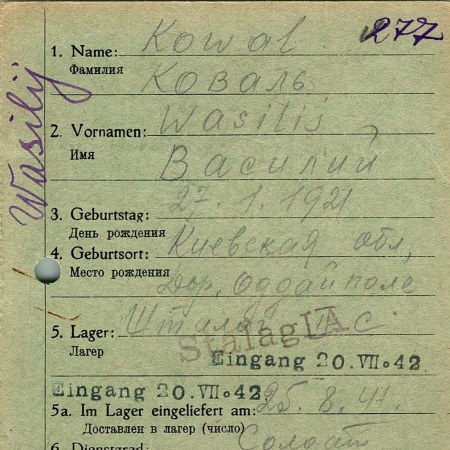 277
Wasilij
1. Name: Kowal
Фамилия Коваль
2. Vornamen: Wasilij
Имя Василий
3. Geburtstag: 27.1.1921
День рождения
4. Geburtsort: Киевская обл,
Место рождения Дер. Оддайполе
5. Lager: Шталаг C
Лагер Stalag IA
Eingang 20.VII.42
Eingang 20.VII.42
5a. Im Lager eingeliefert am: 25.8.41.
Доставлен в лагер (число)
6. Dienstgrad: Солдат